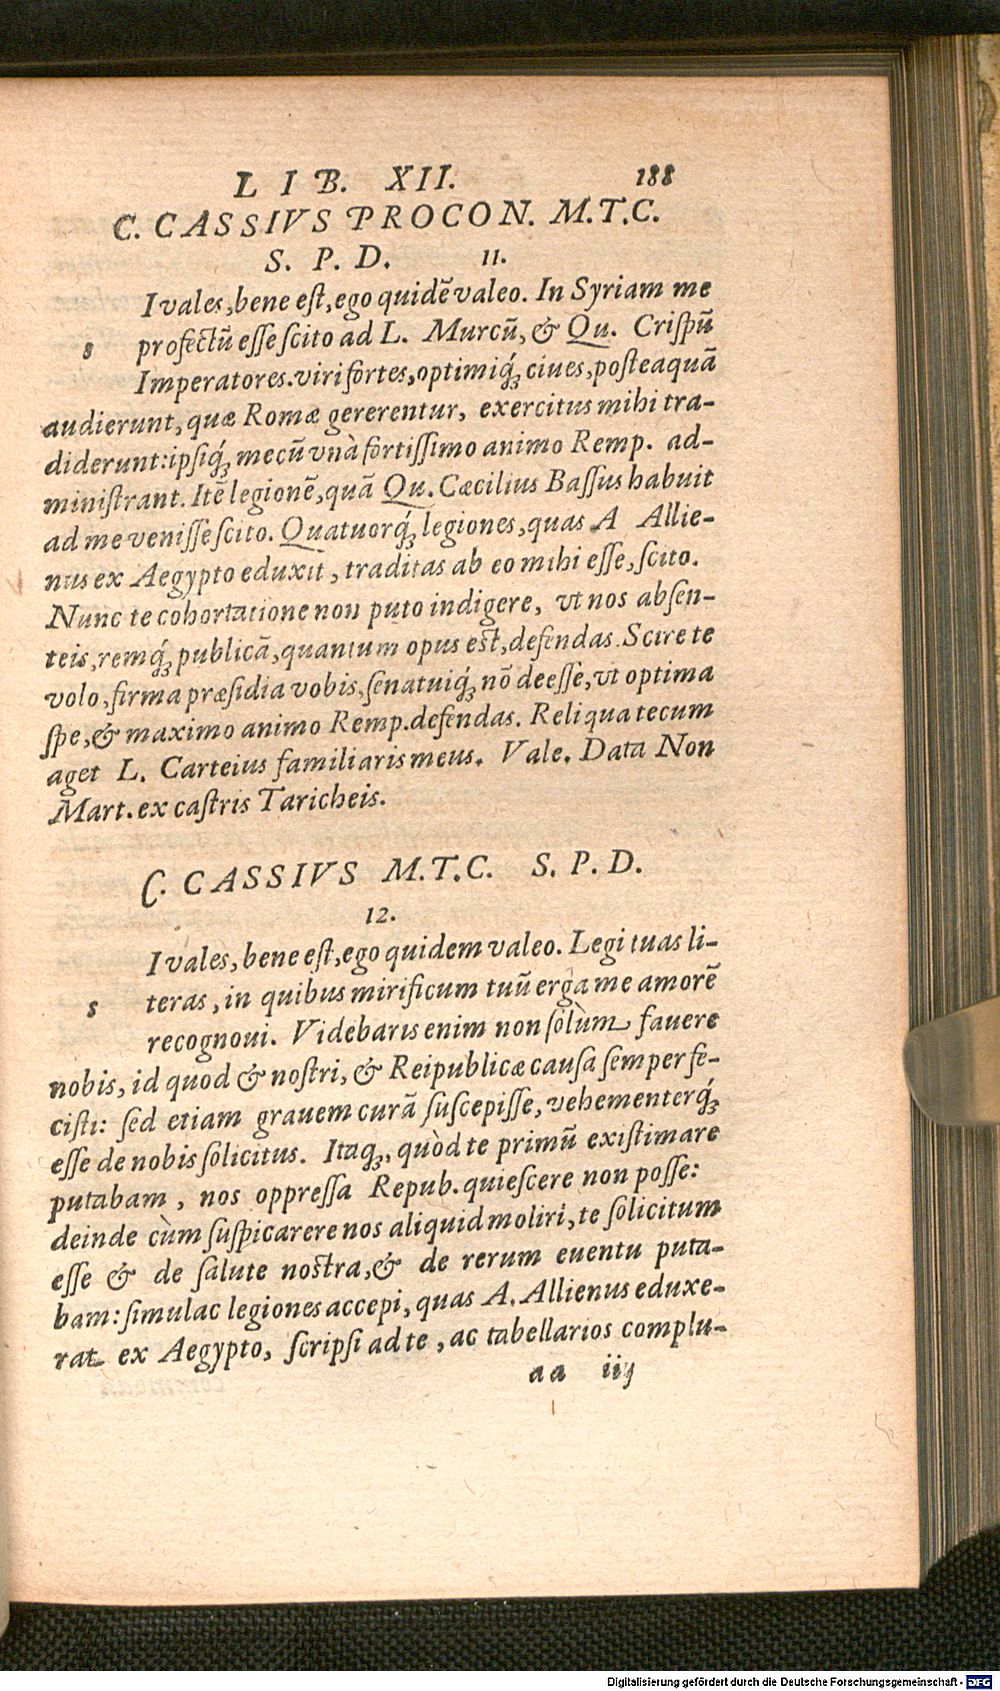 L I B. XII. 188
C. CASSIVS PROCON. M.T.C.
S. P. D. 11.
I vales, bene eſt, ego quidē valeo. In Syriam me
s profectū eſſe ſcito ad L. Murcū, & Qu. Criſpū
Imperatores. viri fortes, optimiq́ꝫ ciues, poſteaquā
audierunt, quæ Romæ gererentur, exercitus mihi tra-
diderunt: ipſiq́ꝫ mecū vnà fortiſſimo animo Remp. ad-
miniſtrant. Itē legionē, quā Qu. Cæcilius Baſſus habuit
ad me veniſſe ſcito. Quatuorq́ꝫ legiones, quas A Allie-
nus ex Aegypto eduxit, traditas ab eo mihi eſſe, ſcito.
Nunc te cohortatione non puto indigere, vt nos abſen-
teis, remq́ꝫ publicā, quantum opus est, defendas. Scire te
volo, firma præſidia vobis, ſenatuiq́ꝫ nō deeſſe, vt optima
ſpe, & maximo animo Remp. defendas. Reliqua tecum
aget L. Carteius familiaris meus. Vale. Data Non
Mart. ex caſtris Taricheis.
C. CASSIVS M.T.C. S. P. D.
12.
I vales, bene eſt, ego quidem valeo. Legi tuas li-
s teras, in quibus mirificum tuū erga me amorē
recognoui. Videbaris enim non ſolùm fauere
nobis, id quod & noſtri, & Reipublicæ cauſa ſemper fe-
ciſti: ſed etiam grauem curā ſuſcepiſſe, vehementerq́ꝫ
eſſe de nobis ſolicitus. Itaqꝫ, quòd te primū exiſtimare
putabam, nos oppreſſa Repub. quieſcere non poſſe:
deinde cùm ſuſpicarere nos aliquid moliri, te ſolicitum
eſſe & de ſalute nostra, & de rerum euentu puta-
bam: ſimulac legiones accepi, quas A. Allienus eduxe-
rat ex Aegypto, ſcripſi ad te, ac tabellarios complu-
aa iij
Digitalisierung gefördert durch die Deutsche Forschungsgemeinschaft - DFG